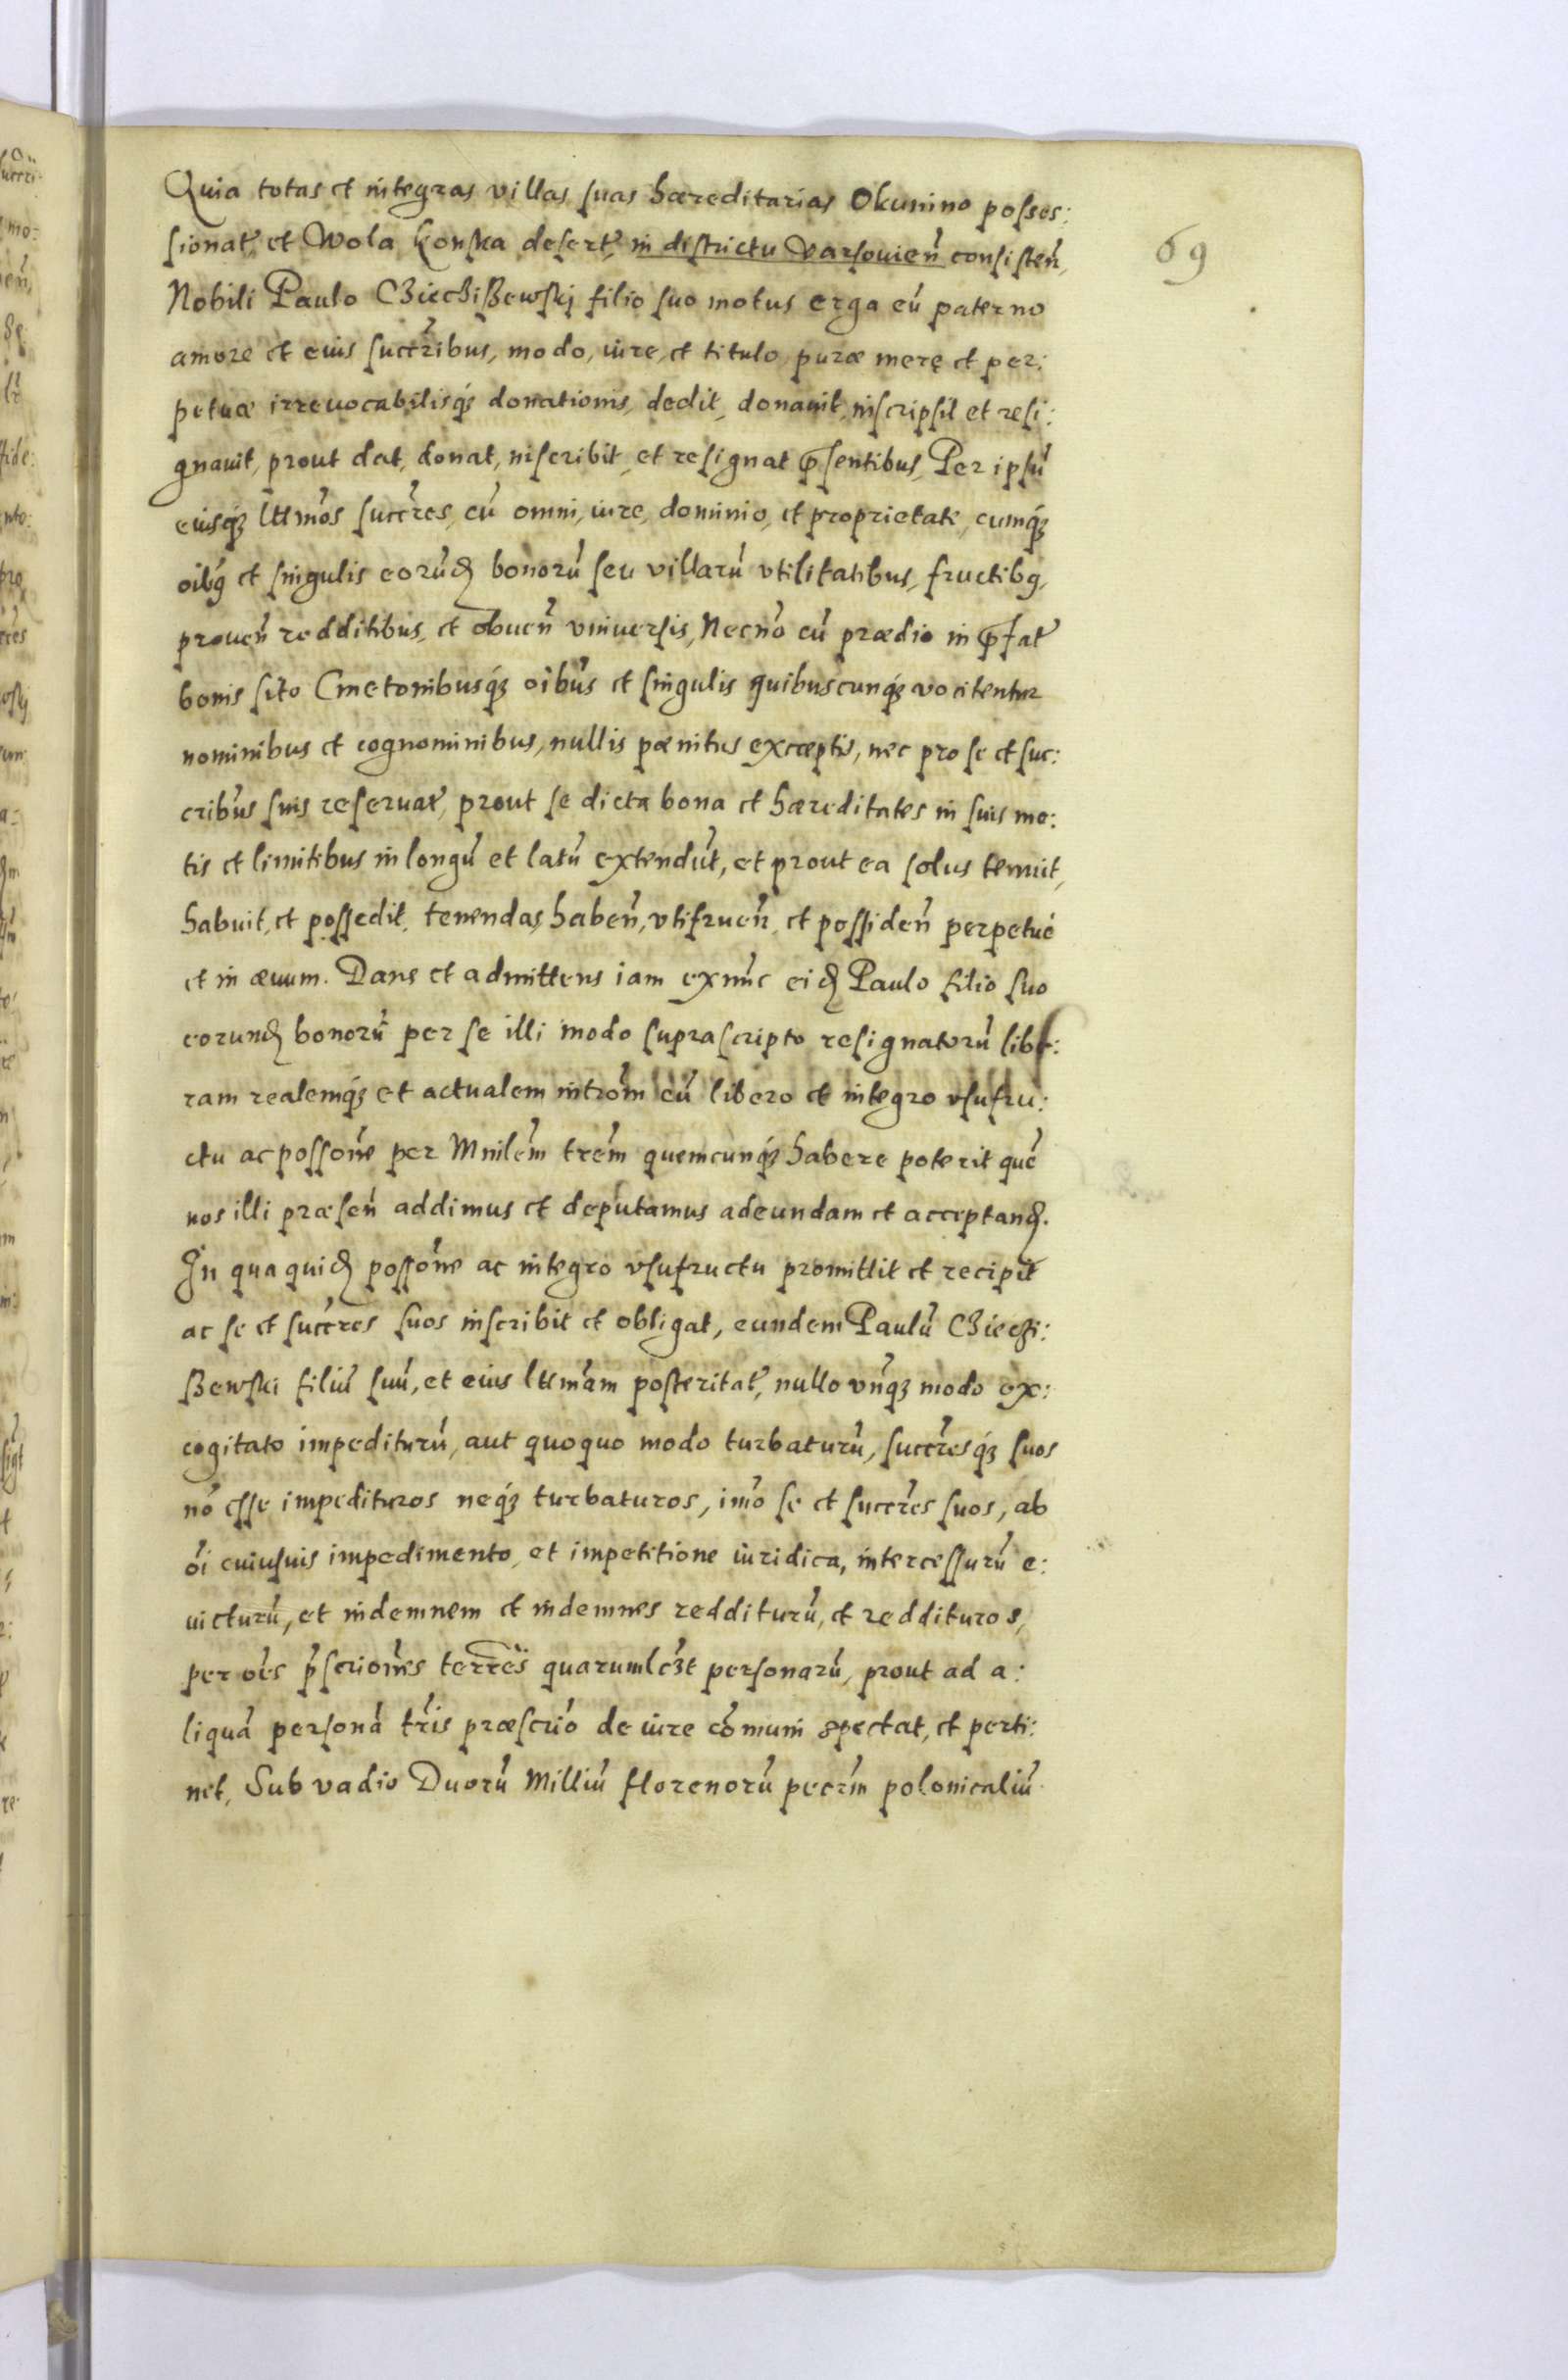 Quia totas et integras villas suas hæreditarias Okunino posses:
69
sionat̃, et Wola Konska desert̃, in districtu Varsouien̄ consisten̄,
Nobili Paulo Chiechißewskj filio suo motus erga eū paterno
amore et eius succr̃ibus, modo, iure, et titulo puræ merę et per:
petuæ irreuocabilisq́ꝫ donationis, dedit, donauit, inscripsit et resi:
gnauit, prout dat, donat, inscribit, et resignat p̃sentibus, Per ipsū
eiusq́ꝫ lttm̃os succr̃es, cū omni, iure, dominio, et proprietate, cumq́ꝫ
oib9 et singulis eorūd̃ bonorū seu villarū vtilitatibus, fructib9,
prouen̄ redditibus, et obuen̄ vniuersis, Necnō cū prædio in p̃fat̃
bonis sito Cmetonibusq́ꝫ oib̃us et singulis quibuscunq́ꝫ vocitentur
nominibus et cognominibus, nullis pœnitus exceptis, nec pro se et suc:
crib̃us suis reseruat̃, prout se dicta bona et hæreditates in suis me:
tis et limitibus in longū et latū extendūt, et prout ea solus tenuit,
habuit, et possedit, tenendas, haben̄, vtifruen̄, et possiden̄ perpetué
et in æuum. Dans et admittens iam exnūc eid̃ Paulo filio suo
eorund̃ bonorū per se illi modo suprascripto resignatorū libe:
ram realemq́ꝫ et actualem introm̄ cū libero et integro vsufru:
ctu ac possōne per Mnilēm trēm quemcunq́ꝫ habere poterit quē
nos illi præsen̄ addimus et deputamus adeundam et acceptand̃.
In qua quid̃ possōne ac integro vsufructu promittit et recipit
ac se et succr̃es suos inscribit et obligat, eundem Paulū Chiechi:
ßewski filiū suū, et eius lttm̃am posteritat̃, nullo vnq̃ꝫ modo ex:
cogitato impediturū, aut quoquo modo turbaturū, succr̃esq́ꝫ suos
nō esse impedituros neq́ꝫ turbaturos, imō se et succr̃es suos, ab
ōi cuiusuis impedimento, et impetitione iuridica, intercessurū e:
uicturū, et indemnem et indemnes redditurū, et reddituros,
per oēs p̃scriōnes terrēs quarumlczt personarū, prout ad a:
liquā personā tr̃is præscriō de iure cōmuni spectat, et perti:
net, Sub vadio Duorū Milliū florenorū pecrīm polonicaliū